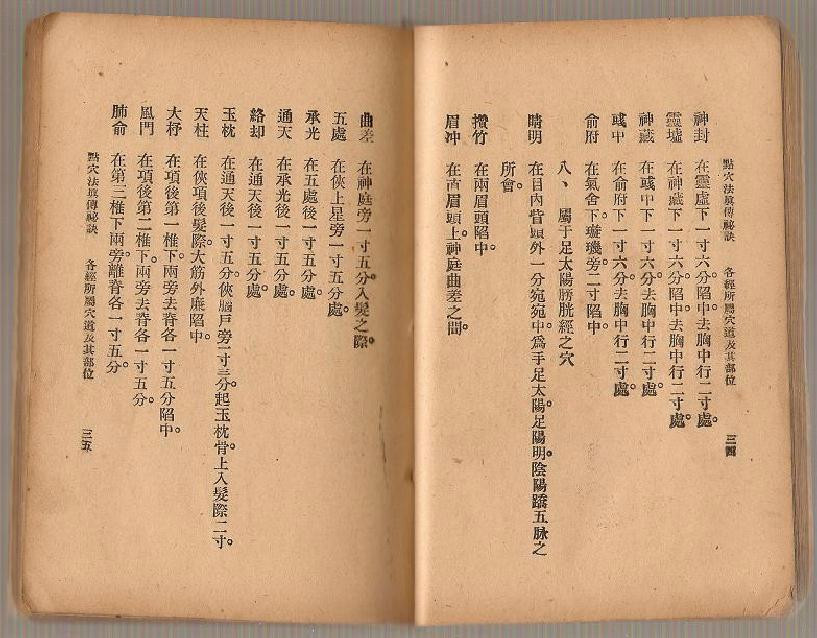 點穴法眞傳秘訣 各經所屬穴道及其部位 三四
神封 在靈虛下一寸六分陷中。去胸中行二寸處。
靈墟 在神藏下一寸六分陷中去胸中行二寸處。
神藏 在彧中下一寸六分去胸中行二寸處。
彧中 在俞府下一寸六分去胸中行二寸處。
俞府 在氣舍下。璇璣旁二寸陷中。
八、屬于足太陽膀胱經之穴
睛明 在目內眥頭外一分宛宛中。爲手足太陽。足陽明。陰陽蹻五脉之
所會。
攢竹 在兩眉頭陷中。
眉冲 在直眉頭上。神庭曲差之間。
曲差 在神庭旁一寸五分。入髮之際。
五處 在俠上星旁一寸五分處。
承光 在五處後一寸五分處。
通天 在承光後一寸五分處。
絡却 在通天後一寸五分處
玉枕 在通天後一寸五分。俠腦戸旁一寸三分。起玉枕骨。上入髮際二寸。
天柱 在俠項後髮際。大筋外廉陷中。
大杼 在項後第一椎下。兩旁去脊各一寸五分陷中。
風門 在項後第二椎下。兩旁去脊各一寸五分。
肺俞 在第三椎下兩旁。離脊各一寸五分。
點穴法眞傳秘訣 各經所屬穴道及其部位 三五